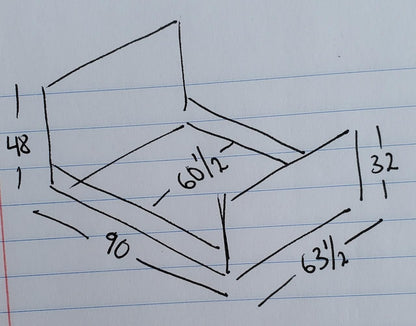 48
60 1/2
32
90
63 1/2